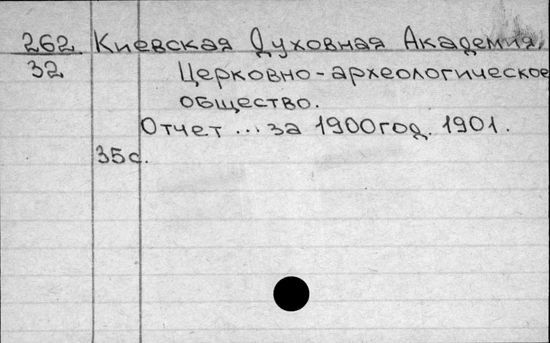 262 Киевская Духовная Академия.
32 Церковно-археологическое
общество.
Отчет ... за 1900год. 1901.
35с.